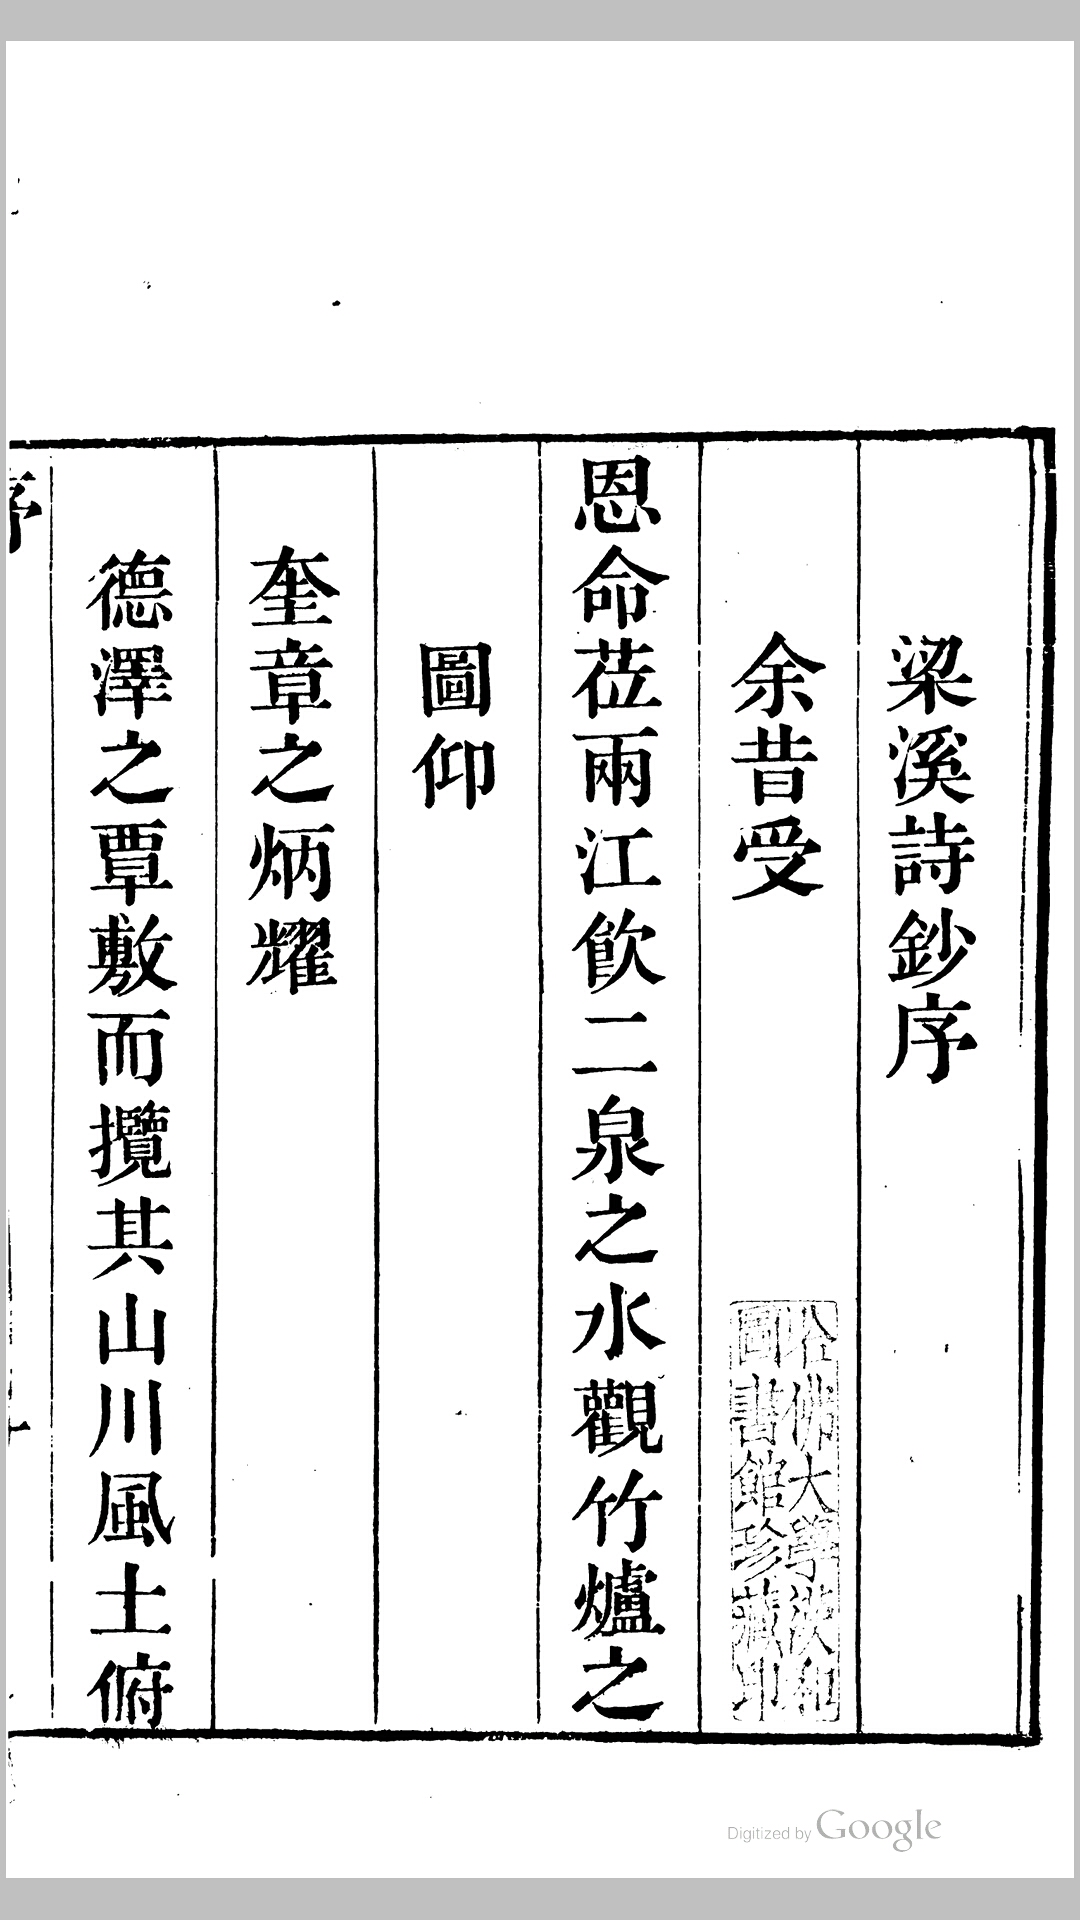 梁溪詩鈔序
余昔受
恩命莅兩江飲二泉之水觀竹爐之
圖仰
奎章之炳耀
德澤之覃敷而攬其山川風土俯
序
哈佛大學漢和
圖書館珍藏印
Digitized by Google